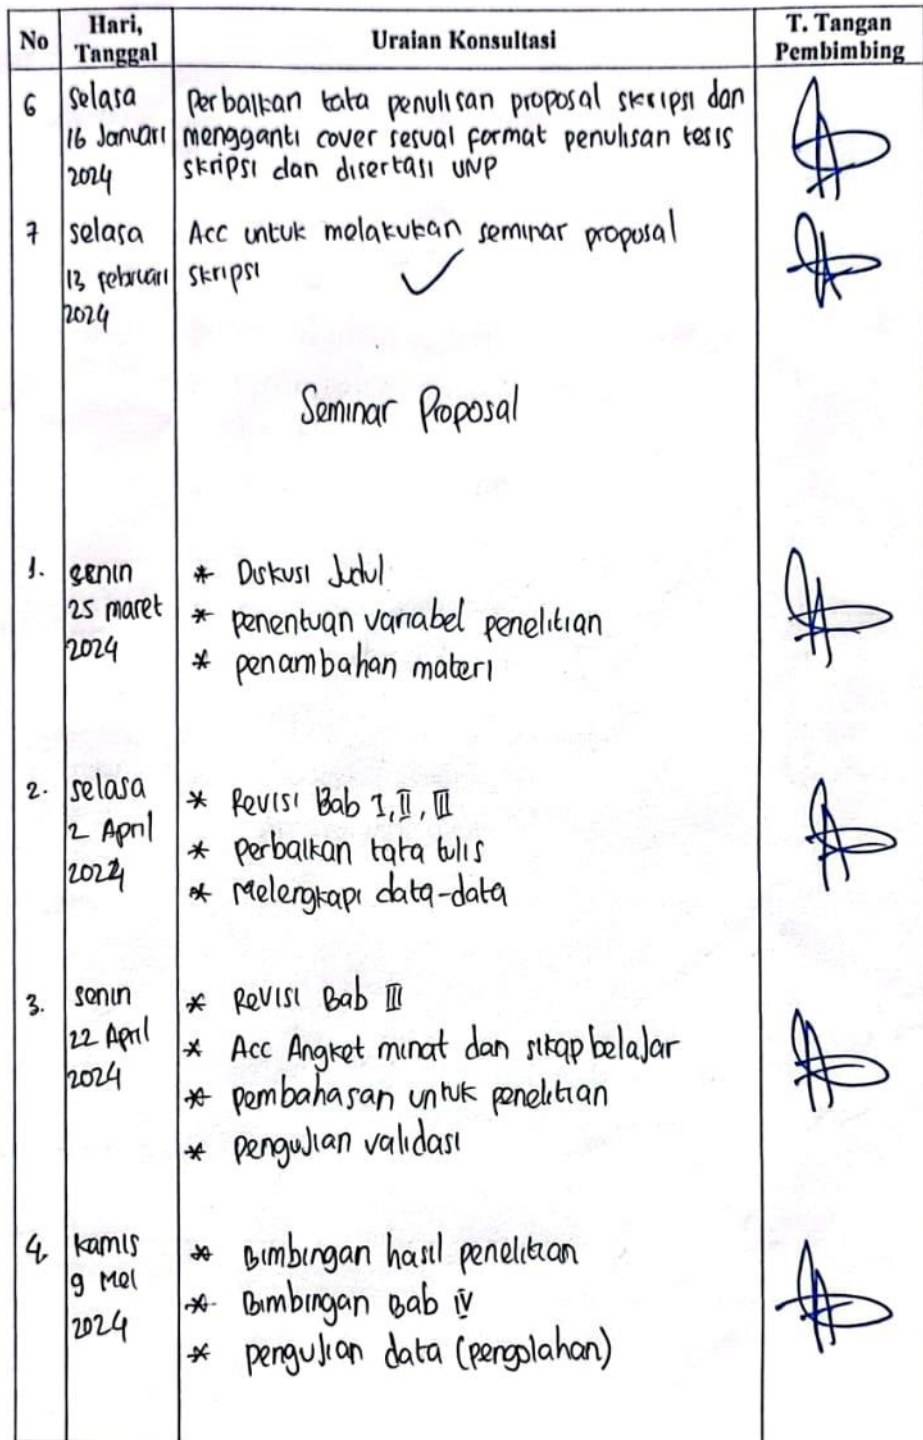 No Hari, Tanggal Uraian Konsultasi T. Tangan Pembimbing
6 Selasa 16 Januari 2024
Perbaikan tata penulisan proposal skripsi dan
mengganti cover sesuai format penulisan tesis
skripsi dan disertasi UNP
7 selasa 13 februari 2024
Acc untuk melakukan seminar proposal
skripsi
Seminar Proposal
1. senin 25 maret 2024
* Diskusi Judul
* penentuan variabel penelitian
* penambahan materi
2. selasa 2 April 2024
* Revisi Bab I, II, III
* Perbaikan tata tulis
* Melengkapi data-data
3. senin 22 April 2024
* Revisi Bab III
* Acc Angket minat dan sikap belajar
* pembahasan untuk penelitian
* pengujian validasi
4 kamis 9 Mei 2024
* Bimbingan hasil penelitian
* Bimbingan Bab IV
* pengujian data (pengolahan)